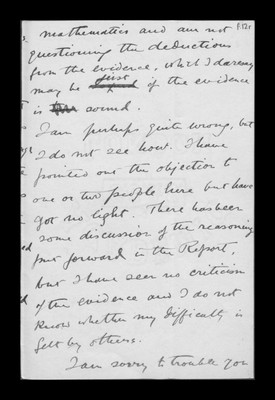 P.121
mathematics and am not
questioning the deductions
from the evidence, which I daresay
just
may be if the evidence
is sound.
I am perhaps quite wrong, but
I do not see how. I have
pointed out the objection to
one or two people here but have
got no light. There has been
some discussion of the reasoning
put forward in the Report,
but I have seen no criticism
of the evidence and I do not
know whether my difficulty is
felt by others.
I am sorry to trouble you